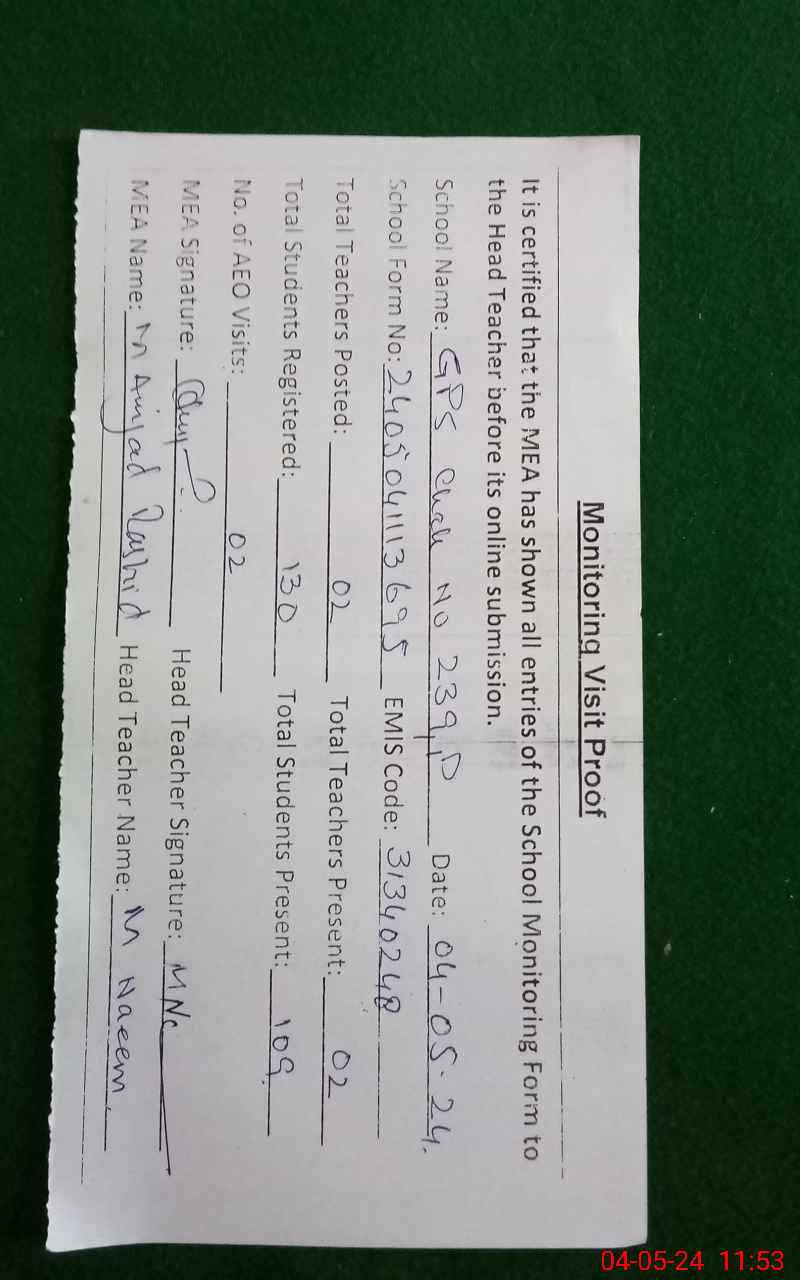 Monitoring Visit Proof
It is certified that the MEA has shown all entries of the School Monitoring Form to
the Head Teacher before its online submission.
School Name: GPS Chak No 239, P Date: 04-05-24.
School Form No: 2405041113695 EMIS Code: 31340248
Total Teachers Posted: 02 Total Teachers Present: 02
Total Students Registered: 130 Total Students Present: 109.
No. of AEO Visits: 02
MEA Signature: Head Teacher Signature:
MEA Name: M Amjad Rashid Head Teacher Name: M Naeem.
04-05-24 11:53